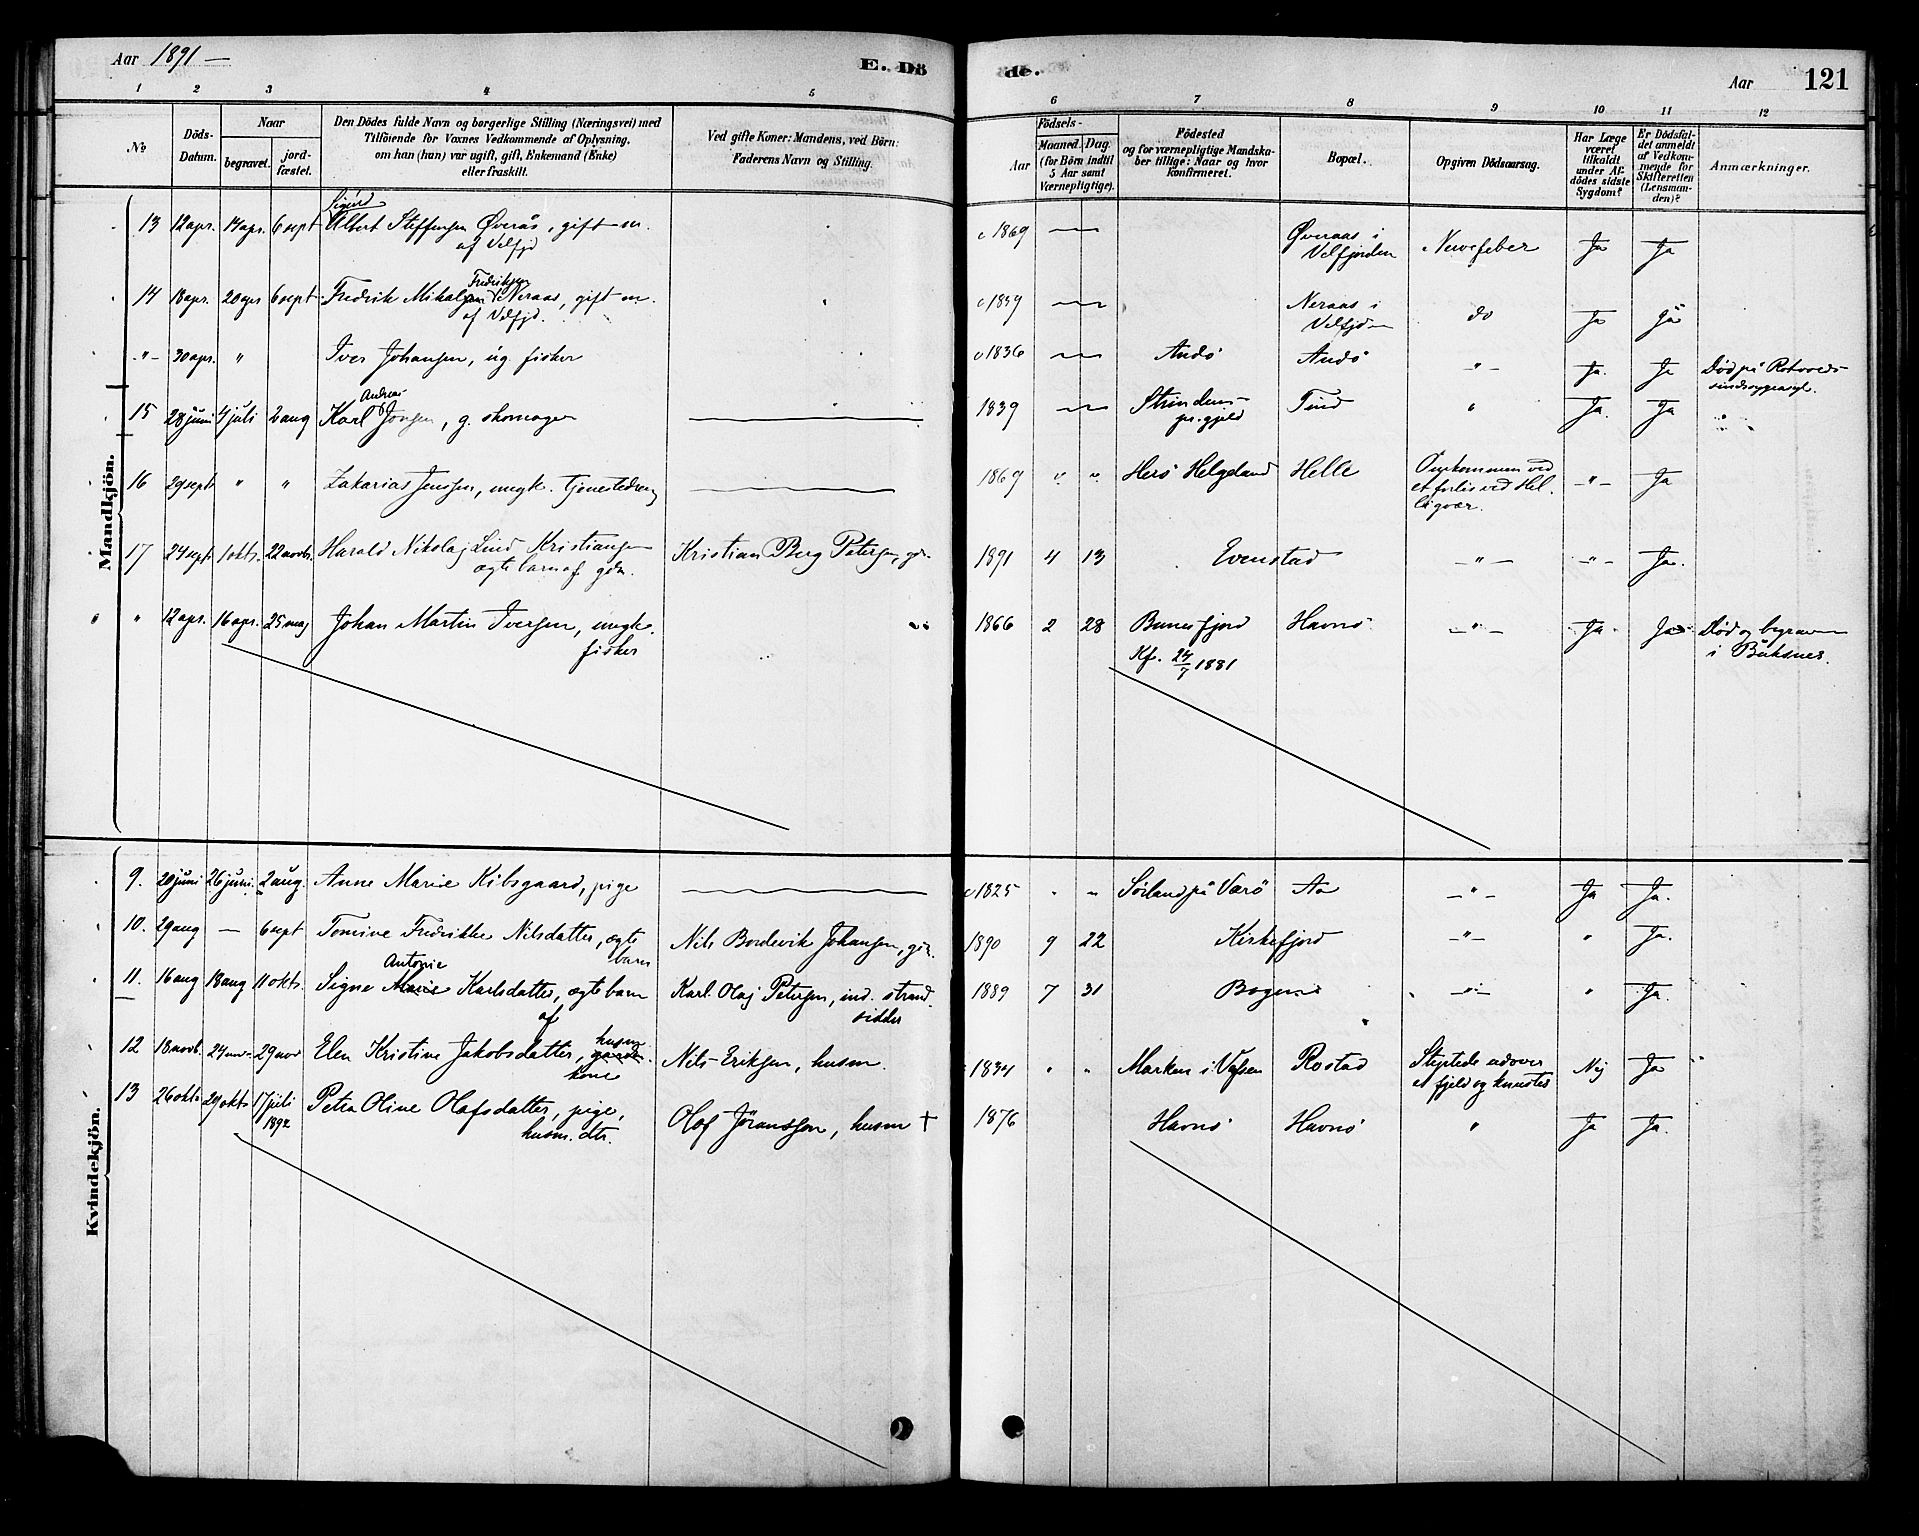 Aar 1891 —
E. Dö
de.
Aar
121
1 2 3 4 5 6 7 8 9 10 11 12
No
Döds-
Datum.
Naar
begravet.
jord-
fæstet.
Den Dödes fulde Navn og borgerlige Stilling (Næringsvei) med
Tilföiende for Voxnes Vedkommende af Oplysning,
om han (hun) var ugift, gift, Enkemand (Enke)
eller fraskilt.
Ved gifte Koner: Mandens, ved Börn:
Faderens Navn og Stilling.
Födsels-
Aar
Maaned.
Dag.
(for Börn indtil
5 Aar samt
Værnepligtige).
Födested
og for værnepligtige Mandska-
ber tillige: Naar og hvor
konfirmeret.
Bopæl.
Opgiven Dödsaarsag.
Har Læge
været
tilkaldt
under Af-
dödes sidste
Sygdom?
Er Dödsfal-
det anmeldt
af Vedkom-
mende for
Skifteretten
(Lensman-
den)?
Anmærkninger.
Mandkjön.
Sigurd
13 12 apr. 17 apr. 6 sept Albert Steffensen Øverås, gift m. c 1869 Øveraas i Nervefeber Ja Ja
af Velfjd Velfjorden
Fredriksen
14 18 apr. 20 apr 6 sept Fredrik Mikalsen Neraas, gift m. c 1859 Neraas i do Ja Ja
af Velfjd. Velfjd
-"- 30 apr. " Iver Johansen, ug. fisker c 1836 Andø Andø -"- Ja. Ja Død på Rotvold
sindssygeasyl.
Andreas
15 28 juni 4 juli 2 aug Karl Jonsen, g. skomager 1839 Strindens Tind " Ja. Ja
pr.gjeld
16 29 sept " " Zakarias Jenssen, ungk. tjenestedreng 1869 " " Herø Helgeland Helle Omkommen ved -"- Ja
et forlis ved Hel-
ligvær.
17 24 sept 1 okt. 22 novbr. Harald Nikolaj Lind Kristiansen Kristian Berg Petersen, gdm. 1891 4 13 Evenstad -"- -"- Ja.
ægte barn af gdm.
" " 12 apr. 16 apr. 25 maj Johan Martin Iversen, ungk. 1866 2 28 Bunesfjord Havnø -"- Ja Ja Død og begraven
fisker Kf. 24/7 1881 i Buksnes.
Kvindekjön.
9. 20 juni 26 juni. 2 aug. Anne Marie Kibsgaard, pige c 1825 " " Sørland på Værø Aa -"- Ja Ja.
10. 29 aug — 6 sept Tomine Fredrikke Nilsdatter, ægte Nils Bordevik Johansen, gdm. 1890 9 22 Kirkefjord -"- " Ja.
barn
Antonie
11. 16 aug 18 aug 11 okt. Signe Marie Karlsdatter, ægte barn Karl Olaj Petersen, ind. strand- 1889 7 31 -"- " Ja.
af sidder
husm
12 18 novb. 24 nov. 29 nov Elen Kristine Jakobsdatter, Nils Eriksen, husm. 1834 " " Marken i Vefsen Rostad Styrtede udover Nej Ja
kone et fjeld og knustes
13 26 okt 29 okt 17 juli Petra Oline Olafsdatter, pige, Olaf Jøranssen, husm † 1876 Havnø Havnø " Ja Ja.
1892 husm. dtr.